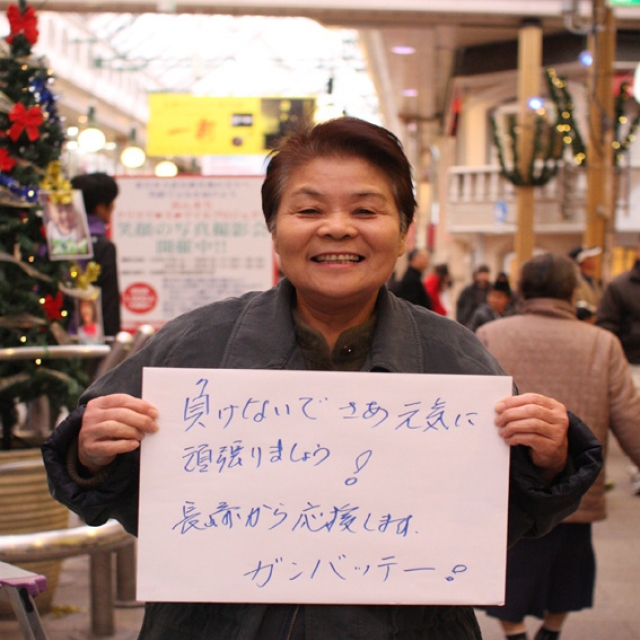 笑顔の写真撮影会
開催中!!
負けないで さあ 元気に
頑張りましょう!
長崎から応援します.
ガンバッテー!